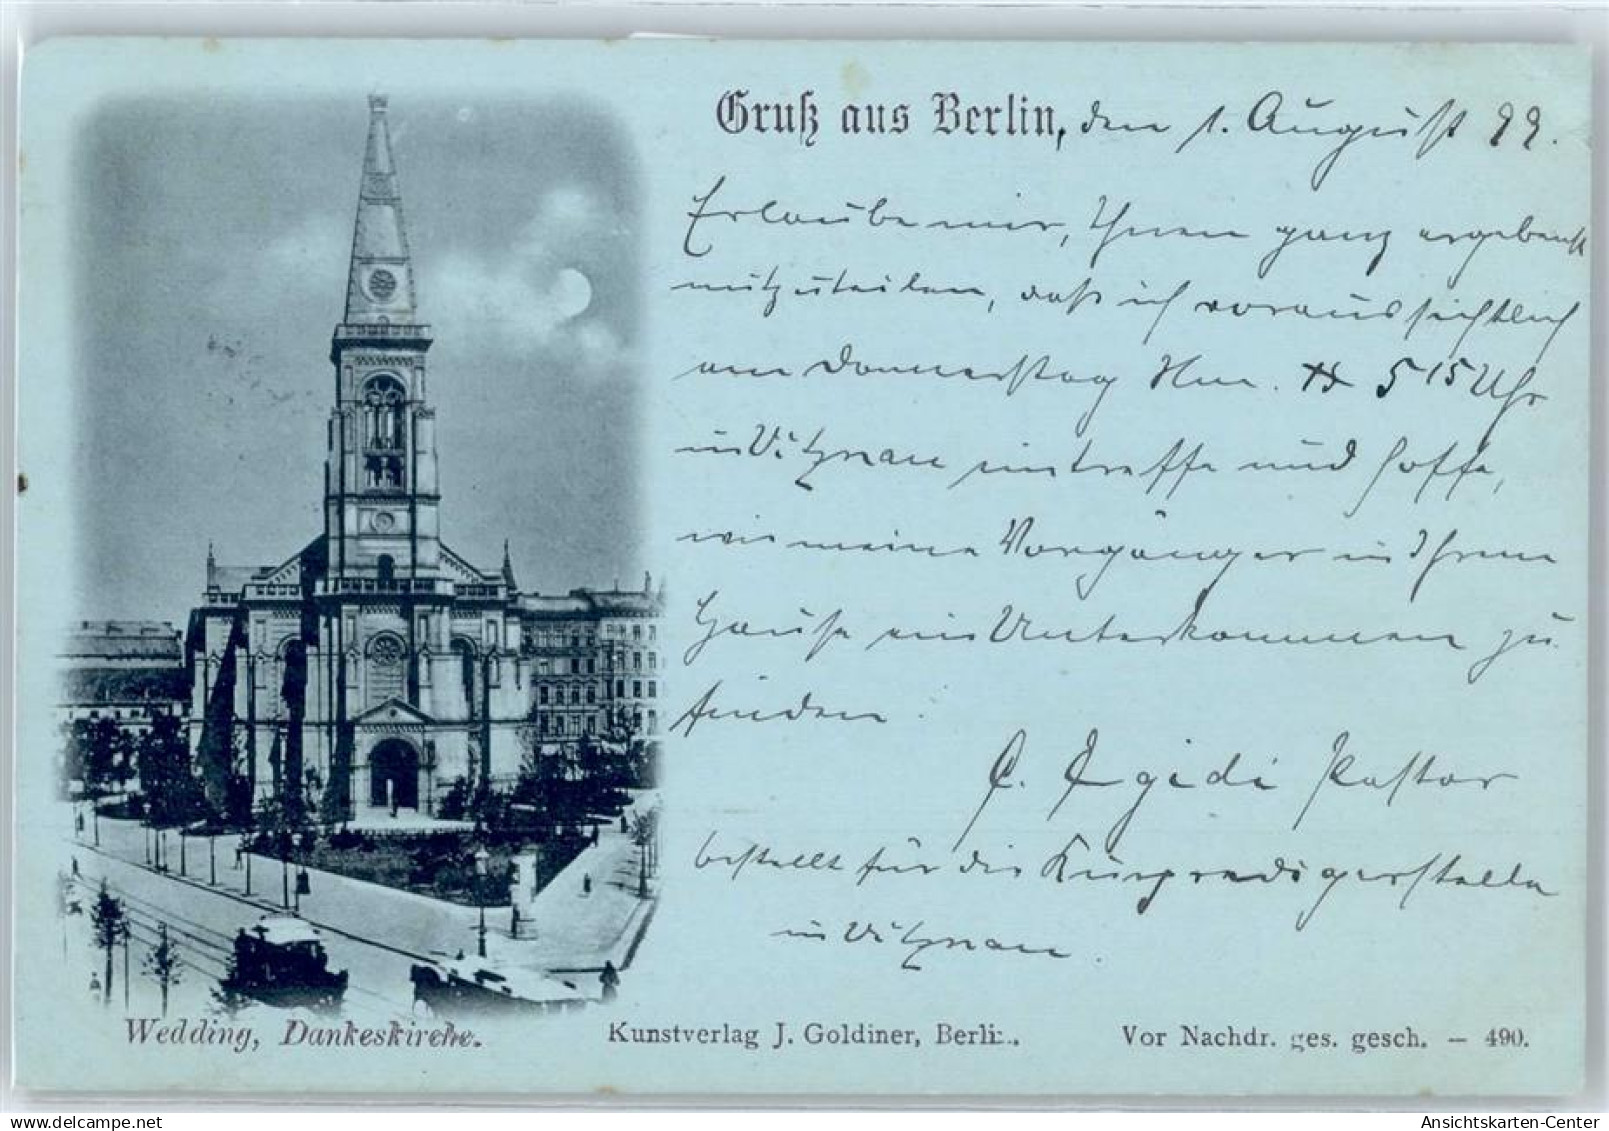 Gruß aus Berlin, den 1. August 99.
Erlaube mir, Ihnen ganz ergebenst
mitzuteilen, daß ich voraussichtlich
am Donnerstag Nm. 5 15 Uhr
in Vitznau eintreffe und hoffe,
wie meine Vorgänger in Ihrem
Hause ein Unterkommen zu
finden.
Egidi Pastor
bestellt für die Kurpredigerstelle
in Vitznau.
Wedding, Dankeskirche.
Kunstverlag J. Goldiner, Berlin.
Vor Nachdr. ges. gesch. — 490.
Ansichtskarten-Center
delcampe.net